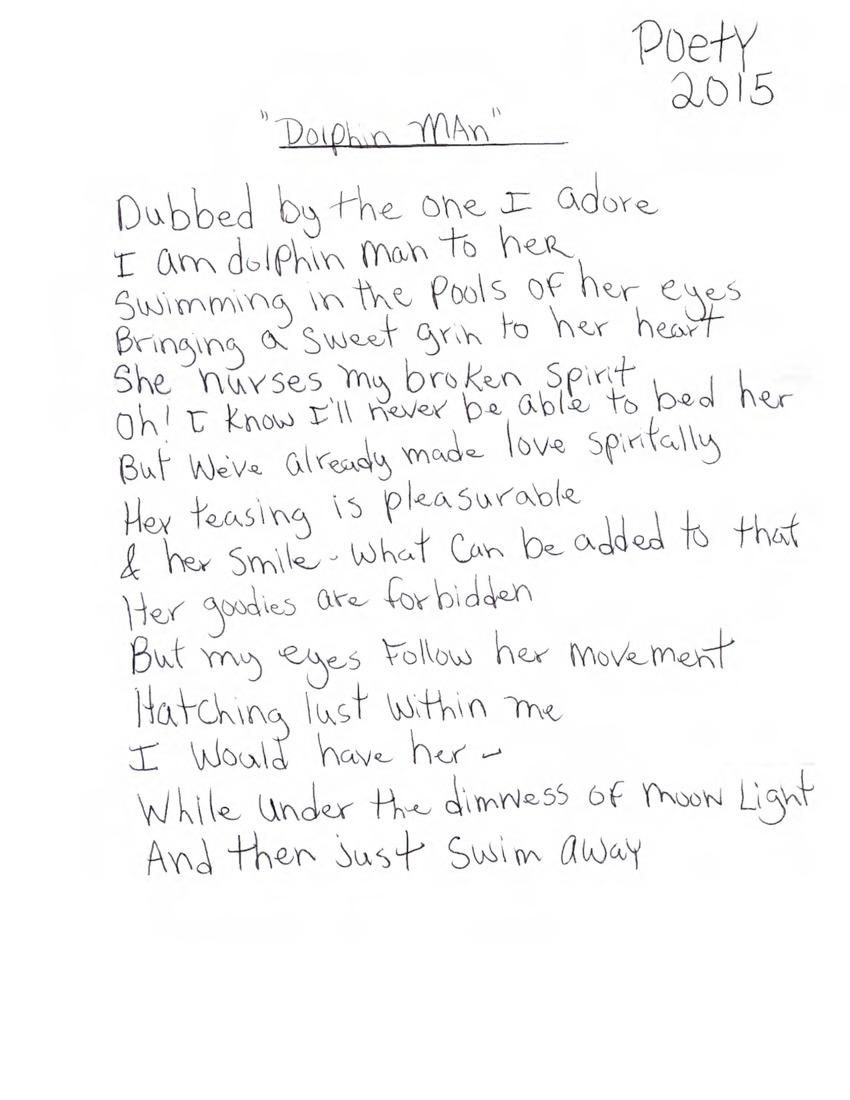 Poety
2015
"Dolphin MAn"
Dubbed by the one I adore
I am dolphin man to her
Swimming in the Pools of her eyes
Bringing a sweet grin to her heart
She nurses my broken Spirit
Oh! I know I'll never be able to bed her
But We've already made love spiritally
Her teasing is pleasurable
& her smile - What Can be added to that
Her goodies are forbidden
But my eyes Follow her movement
Hatching lust within me
I Would have her -
While under the dimness of moon Light
And then just swim away